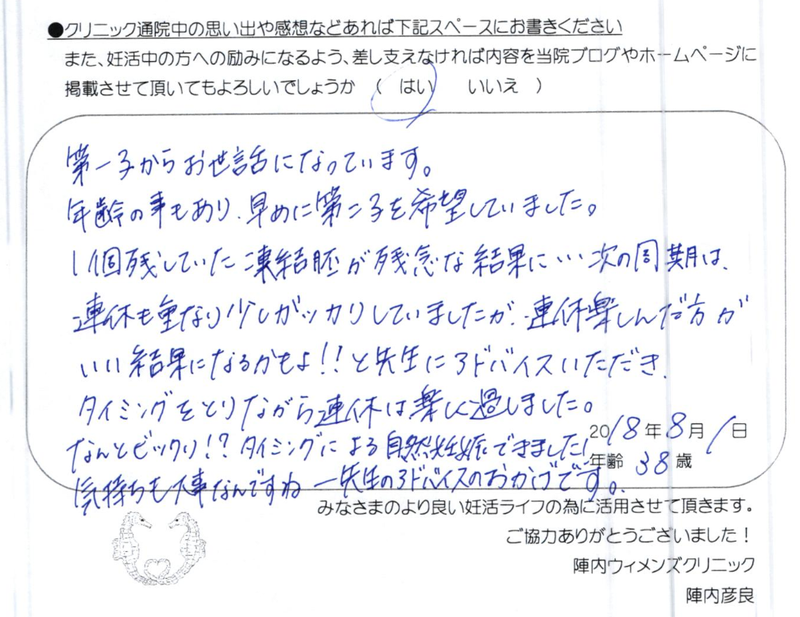 ●クリニック通院中の思い出や感想などあれば下記スペースにお書きください
また、妊活中の方への励みになるよう、差し支えなければ内容を当院ブログやホームページに
掲載させて頂いてもよろしいでしょうか （ はい いいえ ）
第一子からお世話になっています。
年齢の事もあり、早めに第二子を希望していました。
1個残していた凍結胚が残念な結果に… 次の周期は、
連休も重なり少しガッカリしていましたが、連休楽しんだ方が
いい結果になるかもよ!!と先生にアドバイスいただき、
タイミングをとりながら連休は楽しく過しました。
なんとビックリ!?タイミングによる自然妊娠できました!
気持ちも大事なんですね ー先生のアドバイスのおかげです。
2018年8月1日
年齢 38歳
みなさまのより良い妊活ライフの為に活用させて頂きます。
ご協力ありがとうございました！
陣内ウィメンズクリニック
陣内彦良